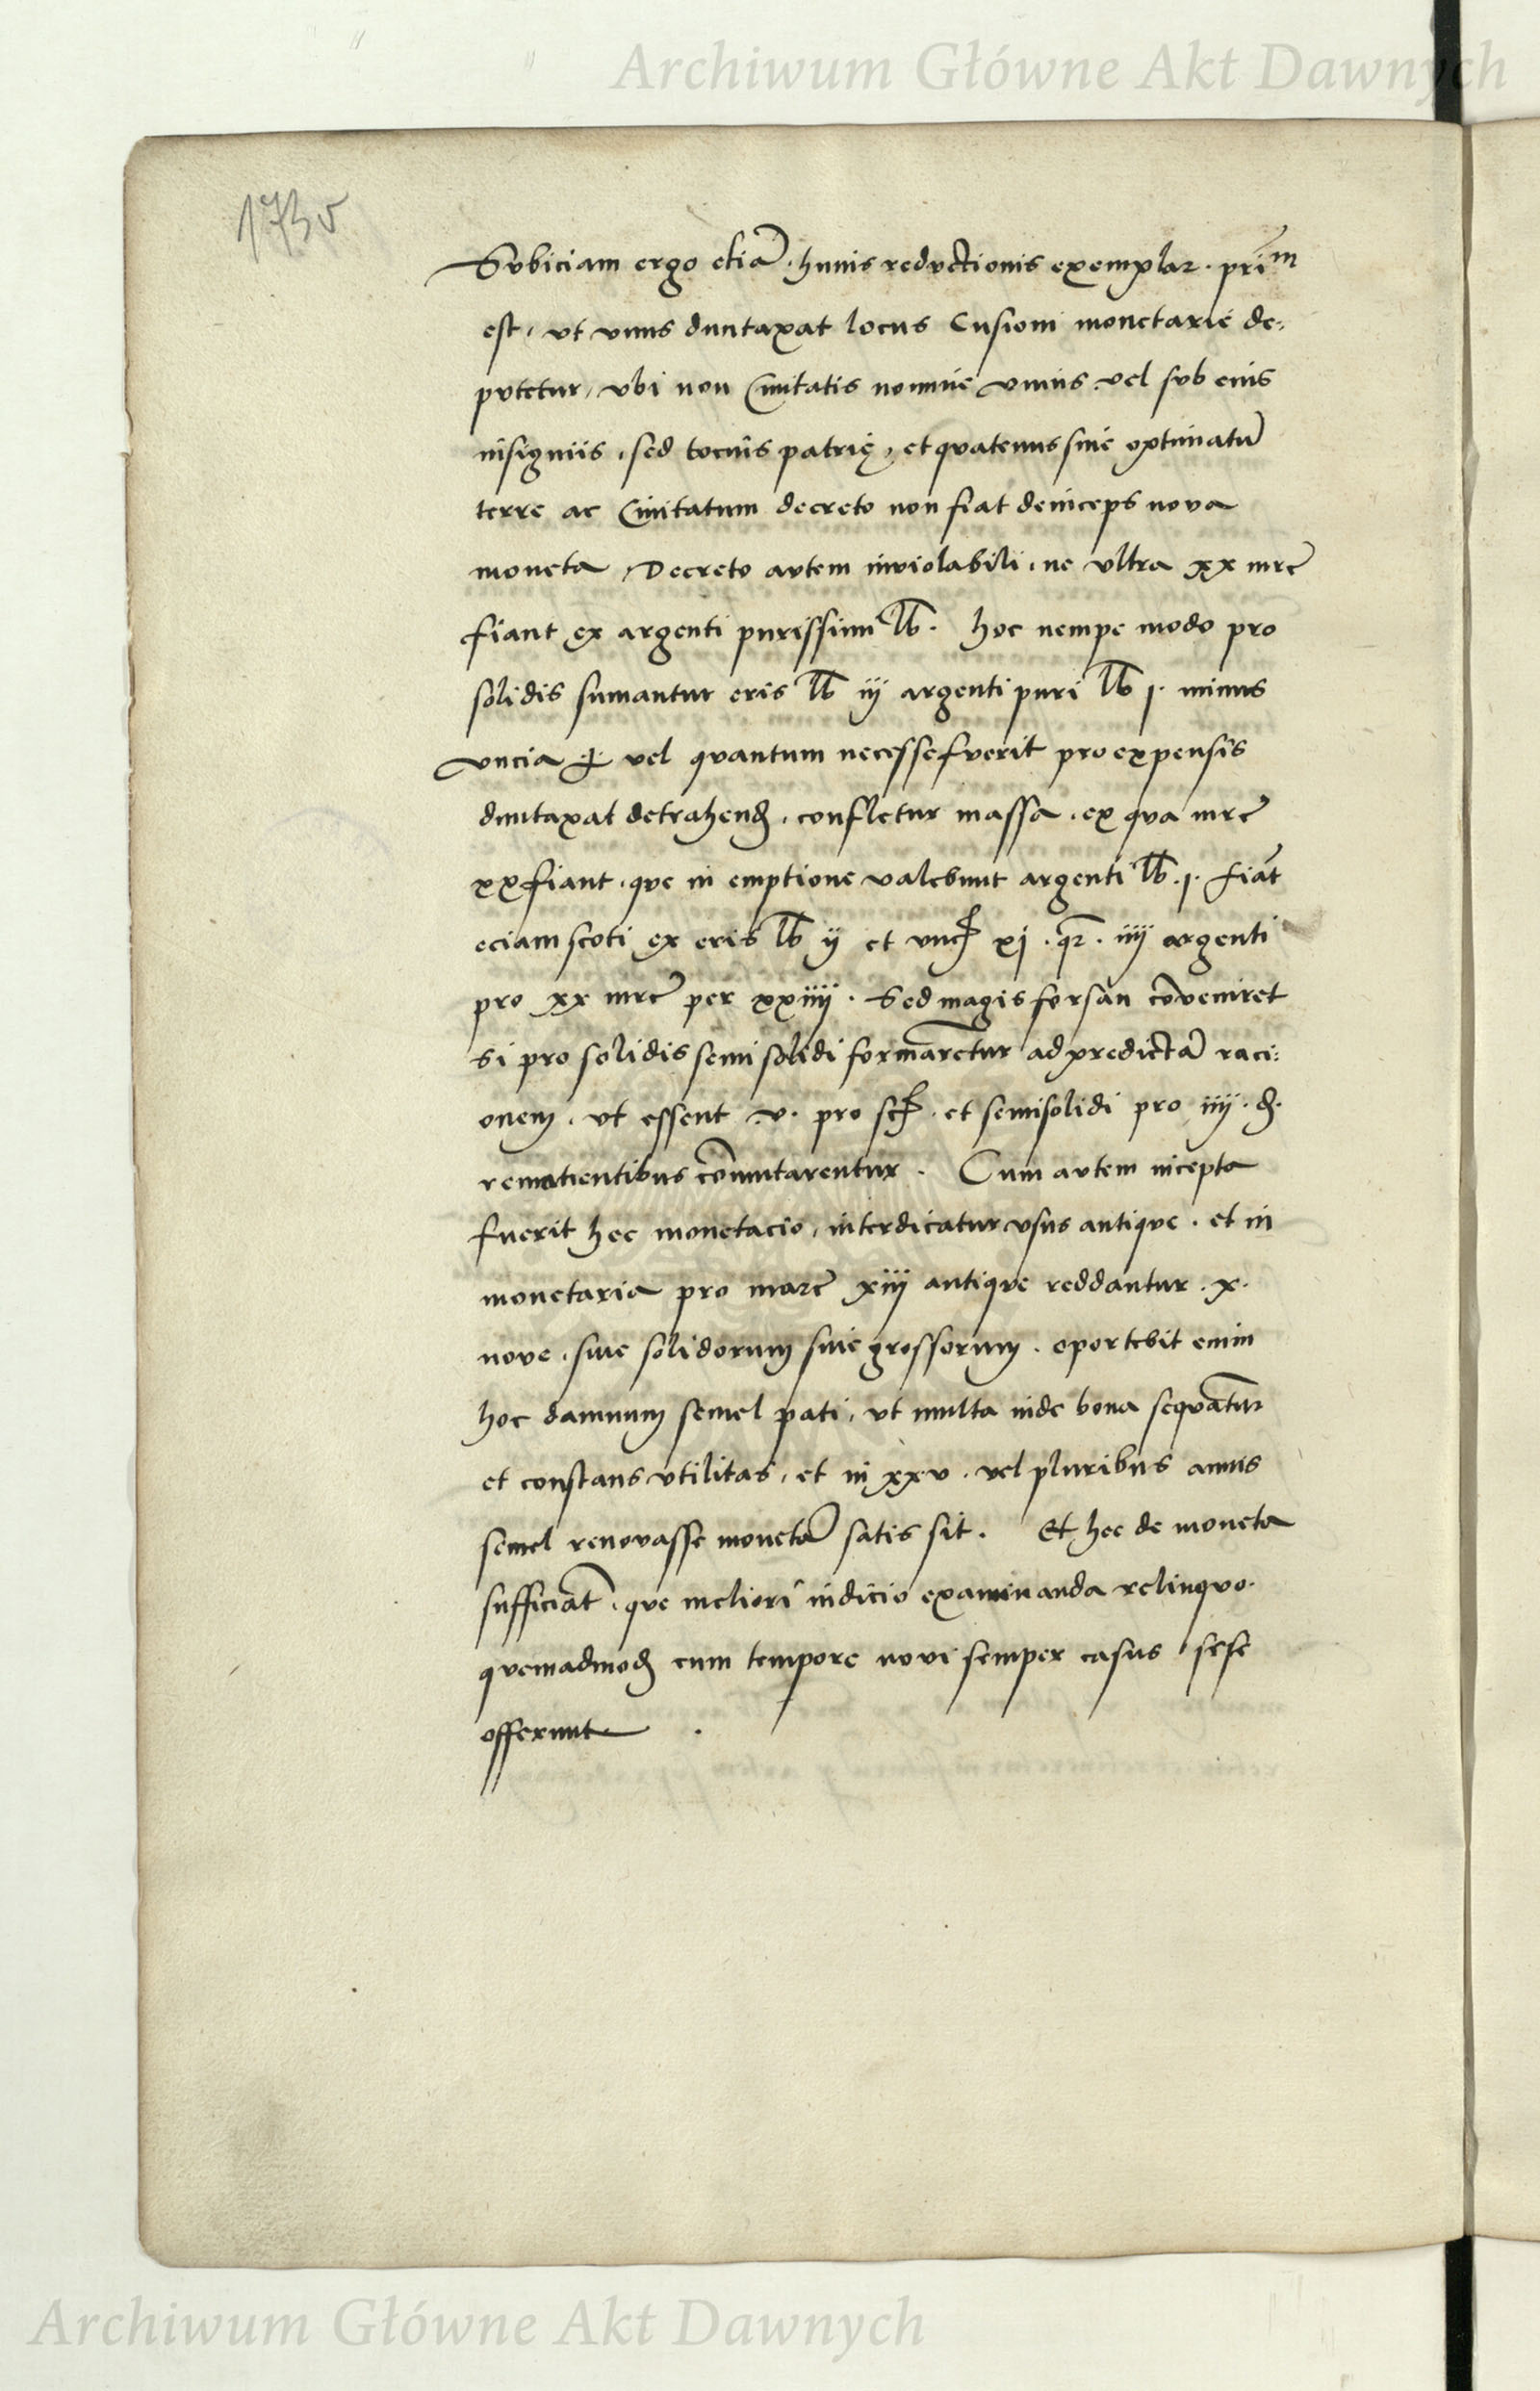 Archiwum Główne Akt Dawnych
173v
Svbiciam ergo etiā · huius redvctionis exemplar · prīm
est, vt vnus duntaxat locus Cusioni monetarie de-
pvtetur, vbi non Civitatis nomine vnius vel svb eius
insigniis, sed tocius patrię, et qvatenus sine optimatū
terre ac Civitatum decreto non fiat deinceps nova
moneta, Decreto avtem inviolabili, ne vltra xx mrc̄
fiant ex argenti purissimi lb̄. hoc nempe modo pro
solidis sumantur eris lb̄ iij argenti puri lb̄ j. minus
vncia vel qvantum necesse fverit pro expensis
duntaxat detrahend, confletur massa, ex qva mrc̄
xx fiant, qve in emptione valebunt argenti lb̄ .j. fiāt
eciam scoti ex eris lb̄ ij et vnc xj · qr̄ · iiij argenti
pro xx mrc̄ per xxiiij · Sed magis forsan cōveniret
si pro solidis semisolidi formarētur ad predictā raci-
onem, vt essent .v. pro sc̄ · et semisolidi pro iiij · d.
remotientibus cōmutarentur . Cum avtem incepta
fuerit hec monetacio, interdicatur vsus antiqve · et in
monetaria pro marc̄ xiij antiqve reddantur . x.
nove, sive solidorum sive grossorum · oportebit enim
hoc damnum semel pati, vt multa inde bona seqvātur
et constans vtilitas, et in xxv · vel pluribus annis
semel renovasse monetā satis sit . Et hec de moneta
sufficiāt, qve meliori iudicio examinanda relinqvo.
qvemadmod cum tempore novi semper casus sese
offerunt .
Archiwum Główne Akt Dawnych